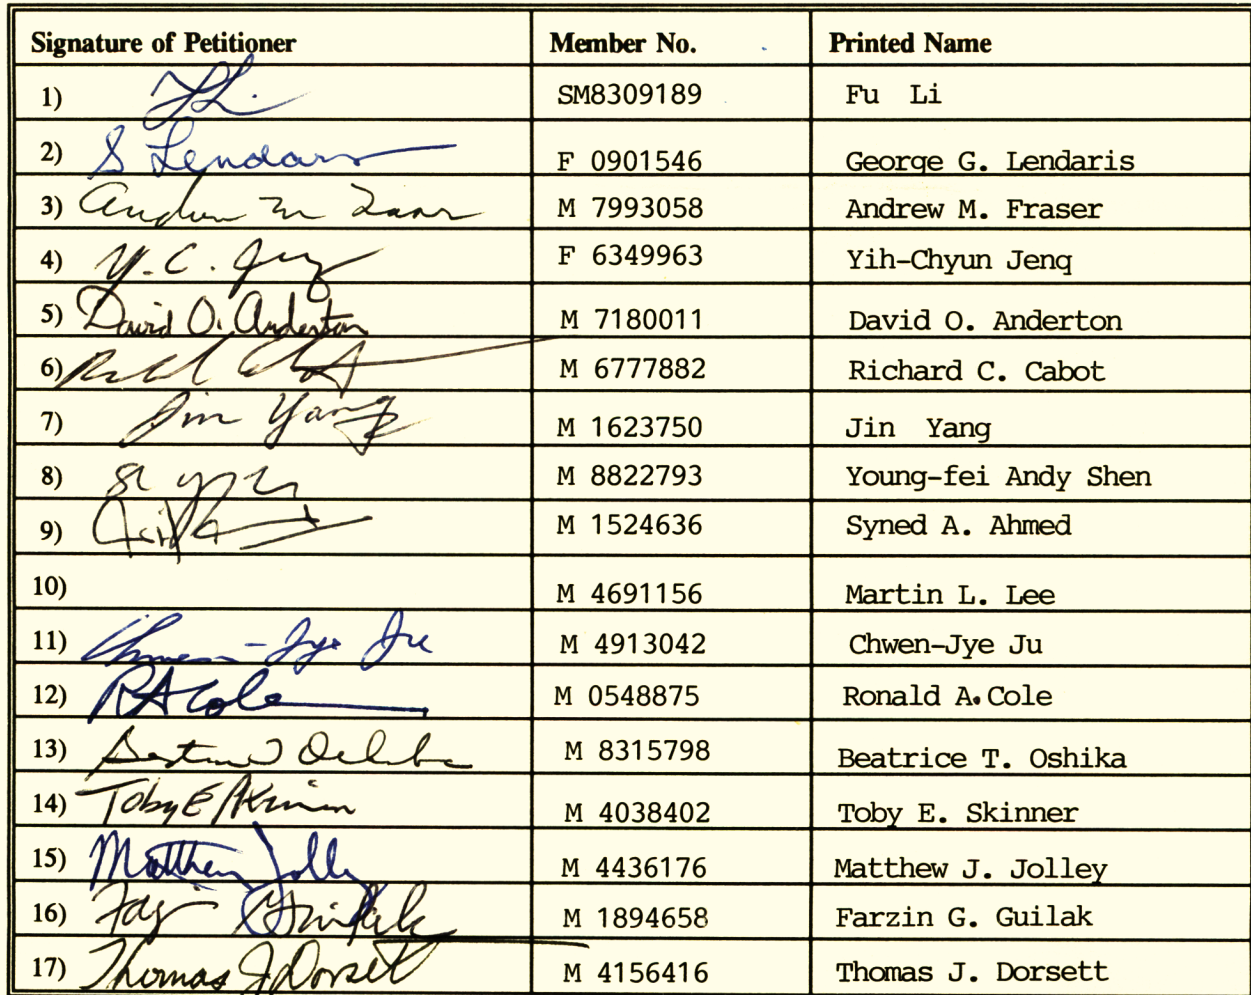 Signature of Petitioner Member No. Printed Name
1) F Li SM8309189 Fu Li
2) G Lendaris F 0901546 George G. Lendaris
3) Andrew M Fraser M 7993058 Andrew M. Fraser
4) Y.C. Jenq F 6349963 Yih-Chyun Jenq
5) David O. Anderton M 7180011 David O. Anderton
6) M 6777882 Richard C. Cabot
7) Jin Yang M 1623750 Jin Yang
8) M 8822793 Young-fei Andy Shen
9) M 1524636 Syned A. Ahmed
10) M 4691156 Martin L. Lee
11) Chwen-Jye Ju M 4913042 Chwen-Jye Ju
12) RA Cole M 0548875 Ronald A. Cole
13) M 8315798 Beatrice T. Oshika
14) Toby E Skinner M 4038402 Toby E. Skinner
15) Matthew Jolley M 4436176 Matthew J. Jolley
16) M 1894658 Farzin G. Guilak
17) Thomas J Dorsett M 4156416 Thomas J. Dorsett